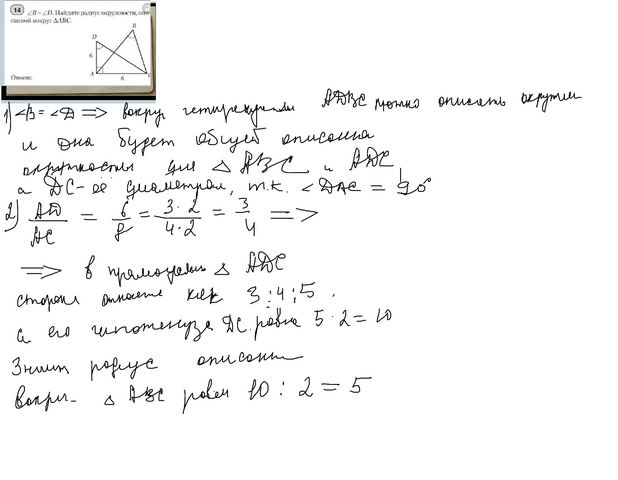 14 ∠B = ∠D. Найдите радиус окружности, опи-
санной вокруг △ABC.
B
D
6
A
8
C
Ответ:
1) ∠B = ∠D ⟹ вокруг четырехугольн ADBC можно описать окружн
и она будет общей описанна
окружность для △ ABC и ADC
а DC - её диаметром, т.к. ∠DAC = 90°
2) AD/AC = 6/8 = 3·2/4·2 = 3/4 ⟹
⟹ в прямоуголн △ ADC
сторон относятс как 3:4:5.
а его гипотенуза DC равна 5·2=10
Значит радиус описанн
вокруг △ ABC равен 10 : 2 = 5